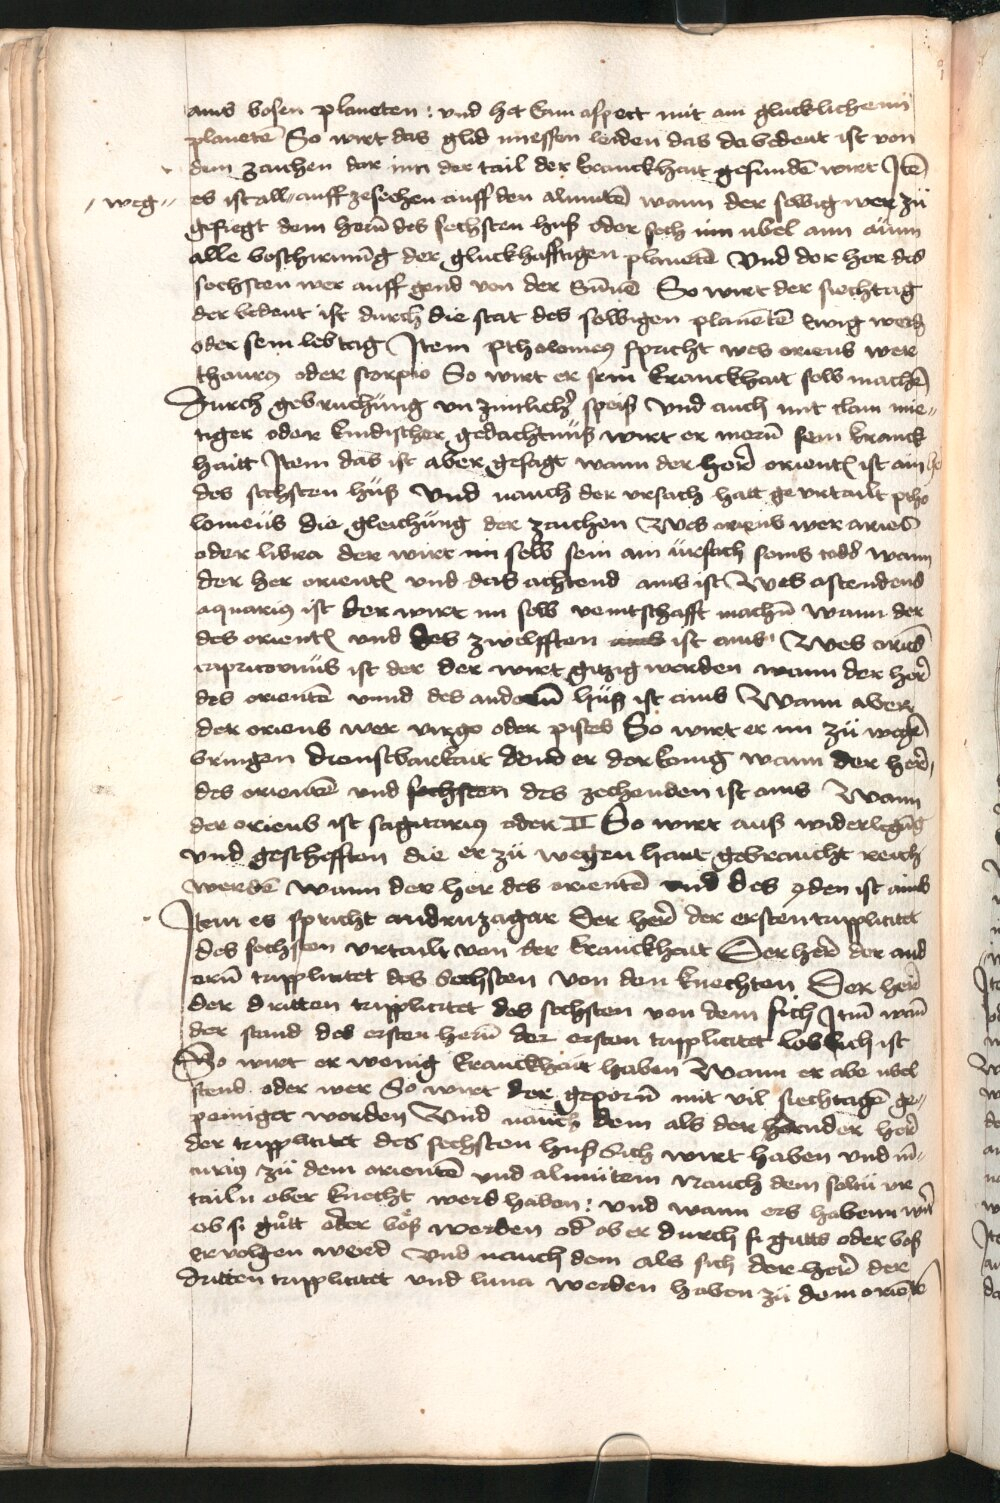 ains bosen planeten : und hat kain aspect mit ain glucklichenn
planetē So wirt das glid miessen leiden das da bedeut ist von
dem zaichen dar inn der tail der kranckhait gefundē wirt Jtē
// weg // es ist all // auff zesechen auff den almutē wann der selbig wer zů
gefiegt dem herñ des sechsten huß oder sech inn ubel ann aůnn
alle beschirmūg der gluckhafftigen planetē Und der her des
sechsten wer auff gend von der Sūnē So wirt der siechtag
der bedeut ist durch die stat des selbigen planetē ewig werdē
oder sein lebtag Jtem ptholomeꝰ spricht wes oriens wer
thaurꝰ oder scorpio So wirt er sein kranckhait selb machē
Durch gebruchung un zimlichr̄ speiß Und auch mit clain mie„
tiger oder kindischer gedachtnuß wirt er merñ sein kranck
haitt Jtem das ist aber gesagt wann der herr̄ orientꝭ ist ain her
des sechsten hůß Und nauch der ursach hatt ge urtailt ptho
lomeus die gleichung der zaichen Wes oriens wer aries
oder libra der wirt im selb sein ain ursach seins todd wann
der her orientꝭ und das achtend ains ist Wes ascendens
aquariꝰ ist der wirt im selb veintschafft machñ Wann der
des orientꝭ und des zwelfften ist ains Wes oriēs
capricornus ist der der wirt gitzig werden wann der her̄
des orientē vnnd des anderñ huß ist ains Wann aber
der oriens wer virgo oder pisces So wirt er im zů wegē
bringen dienstbarkait dend er der konig wann der her̄
des orientē und des zechenden ist ains Wann
der oriens ist sagitariꝰ oder II So wirt auß widerlegūg
und geschefften die er zů wegen haut gebraucht reich
werdē Wann der her des orientē und des 7den ist ains
Jtem es spricht andruzagar Der her̄ der ersten tripplicitet
des sechsten urtailt von der kranckhait Der her̄ der and
erñ tripplicitet des sechsten von den knechten Der her̄
der dritten tripplicitet des sechsten von dem fich Jtm̄ wañ
der stand des ersten herñ der ersten tripplicitet loblich ist
So wirt er wenig kranckhait haben Wann er abe ubel
stend oder wer So wirt der geporñ mit vil siechtagē ge„
peiniget werden Und nauch dem als der her̄ der
der tripplicitet des sechsten huß Sich wirt haben und m̄„
curiꝰ zů dem orientē und almutem Nauch dem soltu ur
tailn ober knecht werd haben : und wann ers habenn wir̄
ob si gůtt oder bǒß werden od̄ ob er durch si gutts oder boß
ervolgen werd Und nauch dem als sich der her̄ der
dritten tripplicitet und luna werden haben zů dem orientē